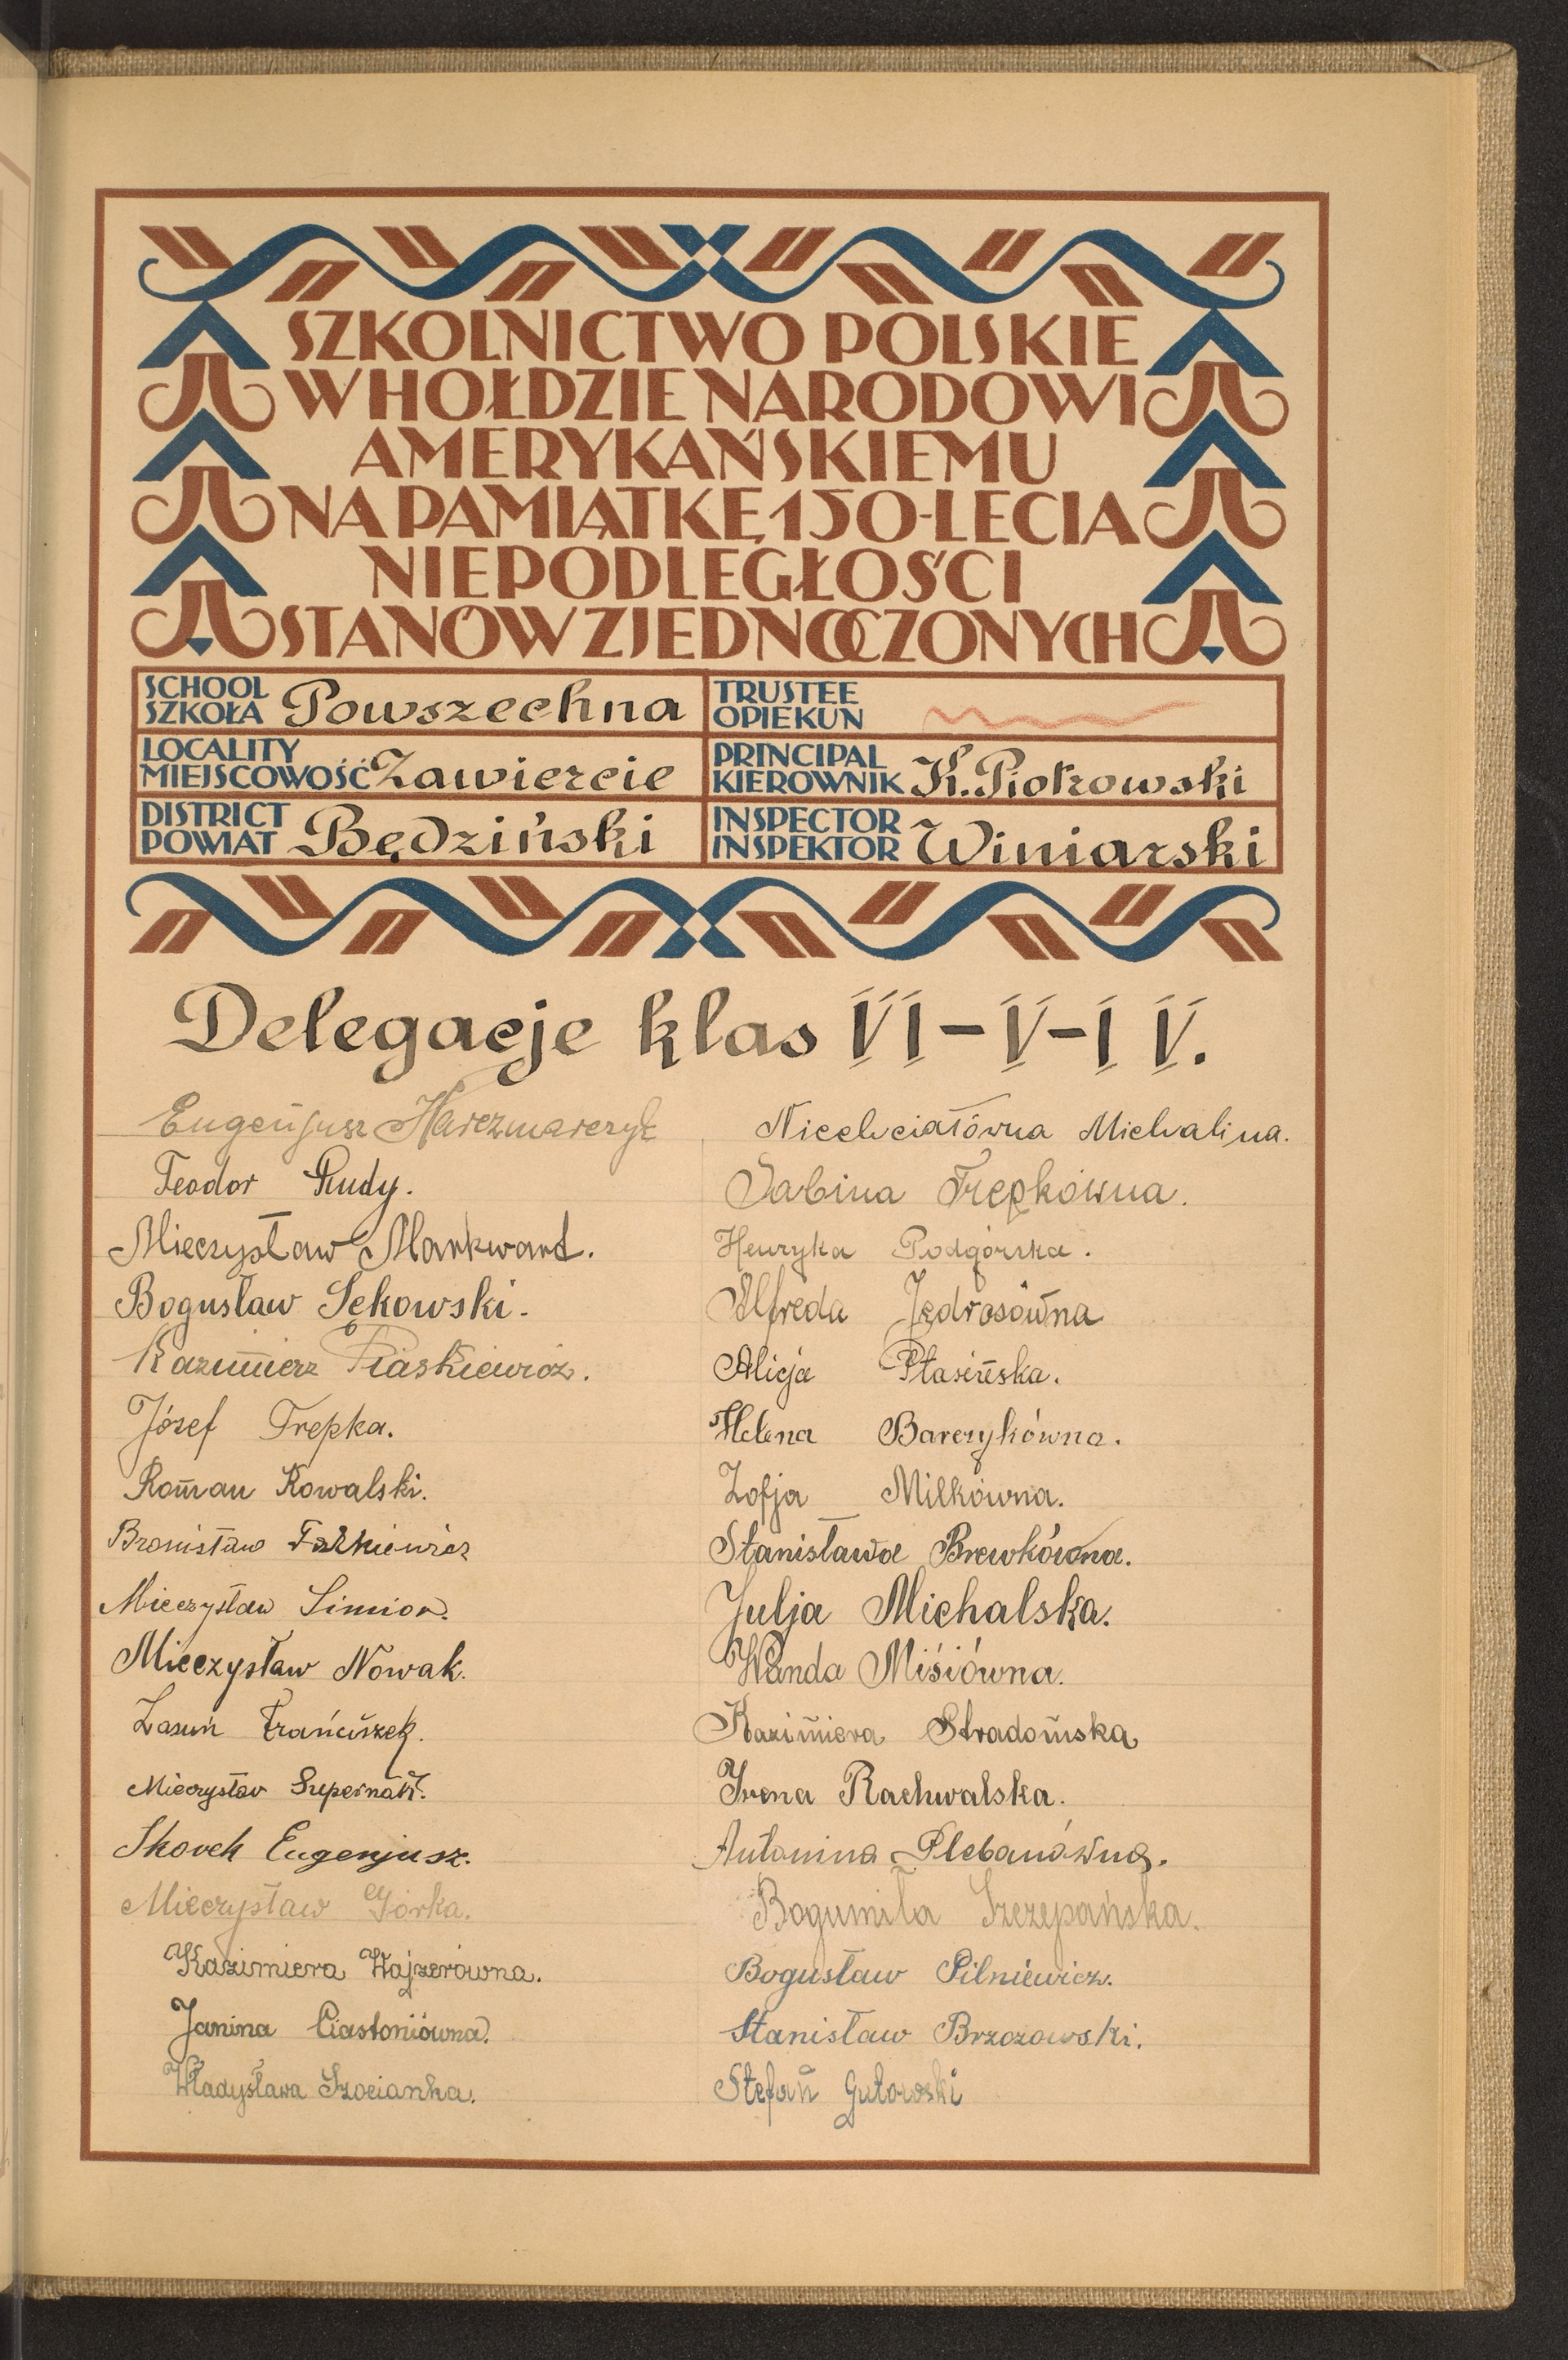 SZKOLNICTWO POLSKIE
W HOŁDZIE NARODOWI
AMERYKAŃSKIEMU
NA PAMIĄTKĘ 150-LECIA
NIEPODLEGŁOŚCI
STANÓW ZJEDNOCZONYCH
SCHOOL
SZKOŁA Powszechna
TRUSTEE
OPIEKUN
LOCALITY
MIEJSCOWOŚĆ Zawiercie
PRINCIPAL
KIEROWNIK K. Piotrowski
DISTRICT
POWIAT Będziński
INSPECTOR
INSPEKTOR Winiarski
Delegacje klas VI-V-IV.
Eugenjusz Karczmarczyk
Teodor Rudy.
Mieczysław Markward.
Bogusław Sękowski.
Kazimierz Piaskiewicz.
Józef Trepka.
Roman Kowalski.
Bronisław Falkiewicz
Mieczysław Simior.
Mieczysław Nowak.
Zasuń Franciszek.
Mieczysław Szpernak.
Skorek Eugenjusz.
Mieczysław Górka.
Kazimiera Wajzerówna.
Janina Ciastoniówna.
Władysława Szocianka.
Niechciałówna Michalina.
Sabina Trepkówna.
Henryka Podgórska.
Elfreda Jędrosówna
Alicja Ptasińska.
Helena Barczykówna.
Zofja Milkówna.
Stanisława Brewkówna.
Julja Michalska.
Wanda Misiówna.
Kazimiera Stradomska
Irena Rachwalska.
Antonina Plebanówna.
Bogumiła Szczepańska.
Bogusław Pilniewicz.
Stanisław Brzozowski.
Stefan Gutowski